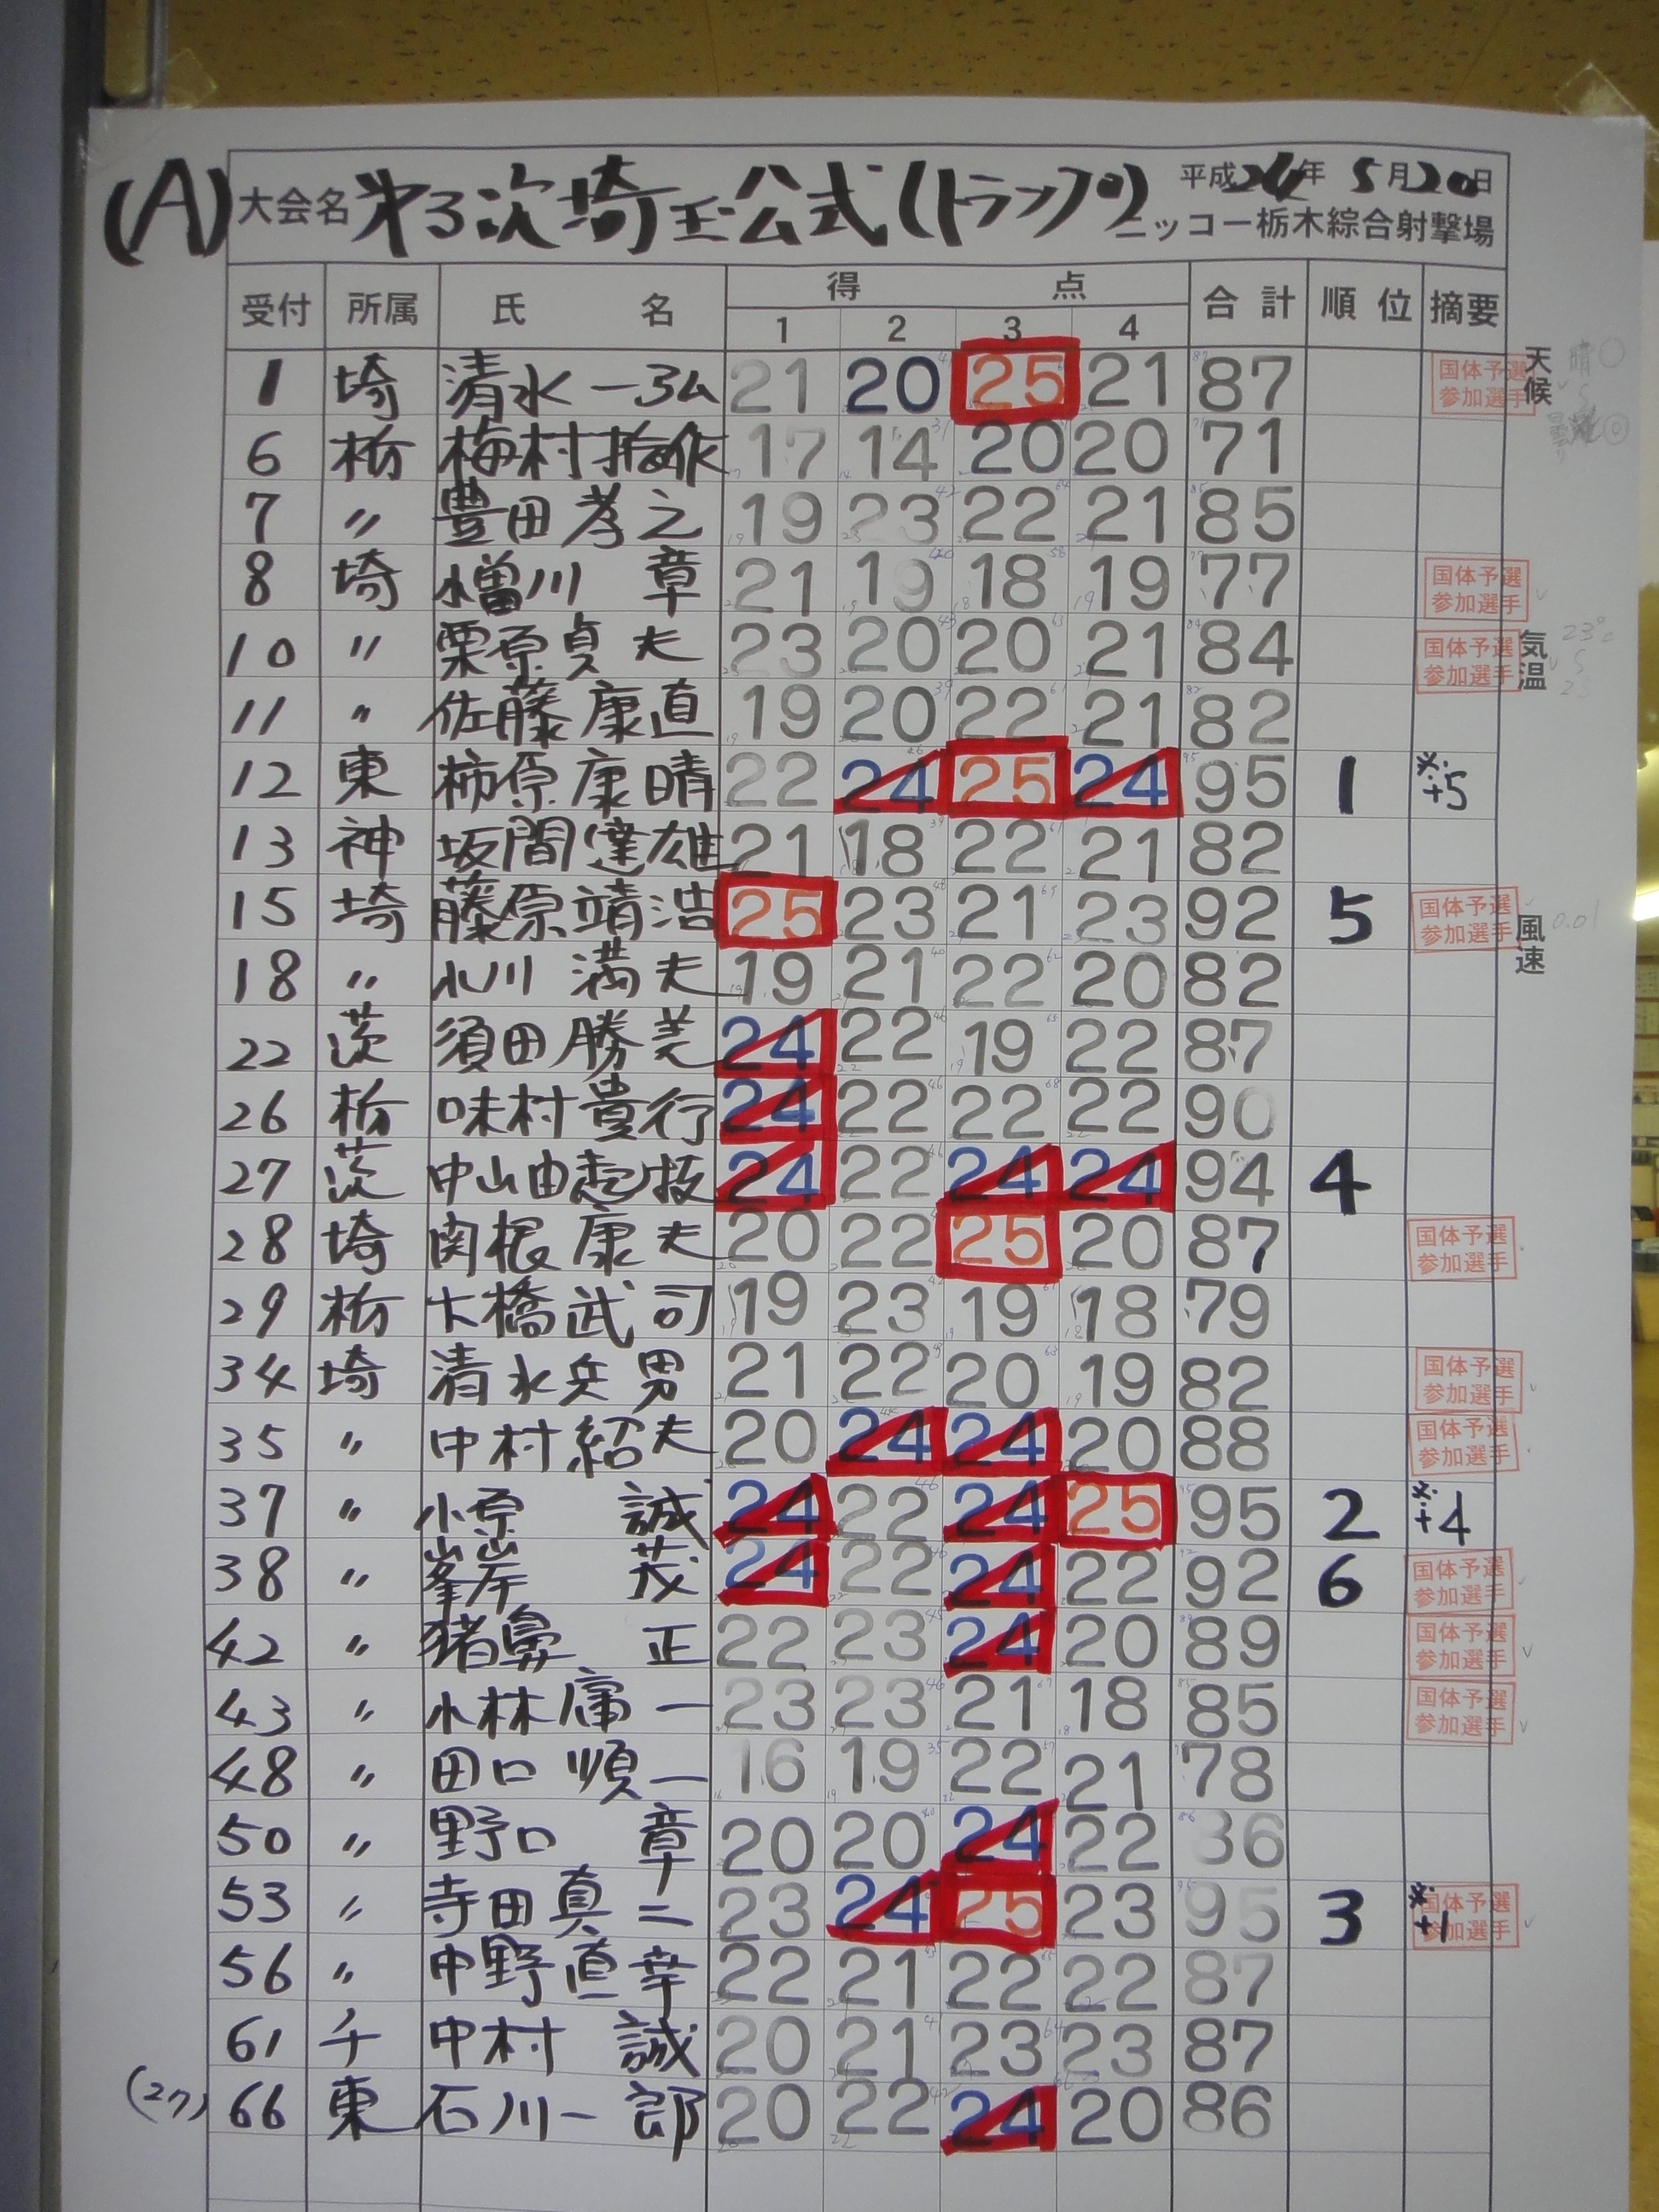 (A) 大会名 第3次埼玉公式(トラップ) 平成24年 5月20日
ニッコー栃木綜合射撃場
受付 所属 氏 名 得 点 合計 順位 摘要
1 2 3 4
1 埼 清水一弘 21 20 25 21 87 国体予選 参加選手
6 栃 梅村 17 14 20 20 71
7 〃 豊田孝之 19 23 22 21 85
8 埼 小曽川 章 21 19 18 19 77 国体予選 参加選手
10 〃 栗原貞夫 23 20 20 21 84 国体予選 参加選手
11 〃 佐藤康直 19 20 22 21 82
12 東 柿原康晴 22 24 25 24 95 1 ※+5
13 神 坂間達雄 21 18 22 21 82
15 埼 藤原靖浩 25 23 21 23 92 5 国体予選 参加選手
18 〃 小川満夫 19 21 22 20 82
22 茨 須田勝美 24 22 19 22 87
26 栃 味村貴行 24 22 22 22 90
27 茨 中山由起枝 24 22 24 24 94 4
28 埼 関根康夫 20 22 25 20 87 国体予選 参加選手
29 栃 大橋武司 19 23 19 18 79
34 埼 清水兵男 21 22 20 19 82 国体予選 参加選手
35 〃 中村紹夫 20 24 24 20 88 国体予選 参加選手
37 〃 小原 誠 24 22 24 25 95 2 ※+4
38 〃 峯岸 茂 24 22 24 22 92 6 国体予選 参加選手
42 〃 猪鼻 正 22 23 24 20 89 国体予選 参加選手
43 〃 小林庸一 23 23 21 18 85 国体予選 参加選手
48 〃 田口順一 16 19 22 21 78
50 〃 野口 章 20 20 24 22 86
53 〃 寺田真二 23 24 25 23 95 3 ※+1 国体予選 参加選手
56 〃 中野直幸 22 21 22 22 87
61 千 中村 誠 20 21 23 23 87
(27) 66 東 石川一郎 20 22 24 20 86
天候 晴
気温 23℃
風速 0.01